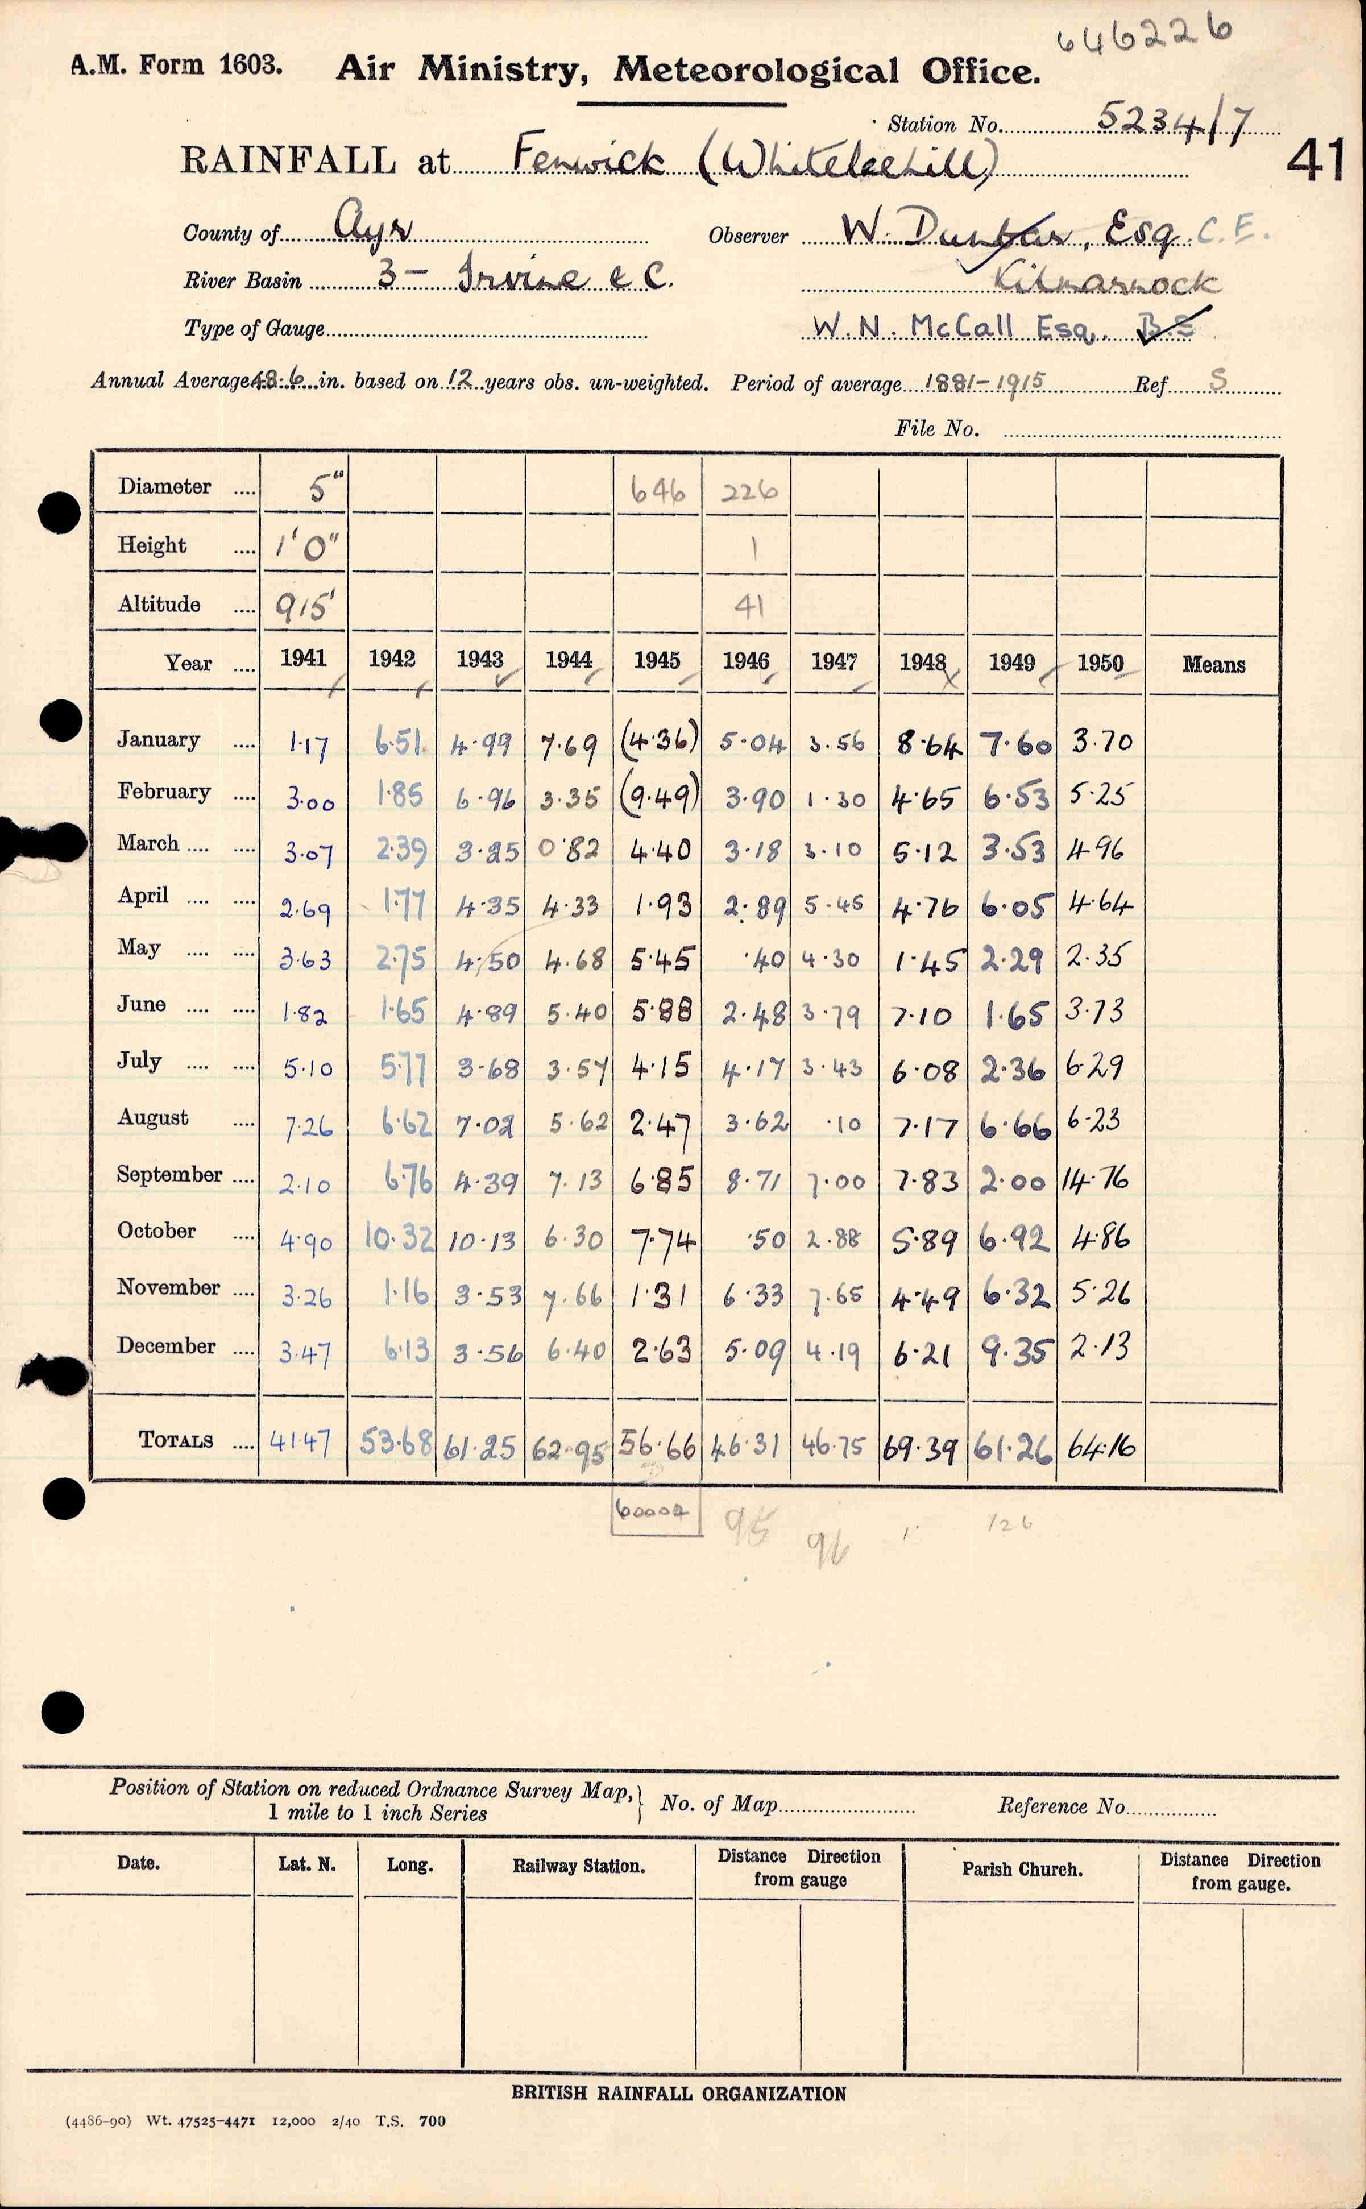 646226
A.M. Form 1603. Air Ministry, Meteorological Office.
Station No. 5234/7
RAINFALL at Fenwick (Whiteleehill) 41
County of Ayr Observer W. Dunbar, Esq. C.E.
River Basin 3- Irvine &C. Kilmarnock
Type of Gauge W.N. McCall Esq. B.S
Annual Average 48.6 in. based on 12 years obs. un-weighted. Period of average 1881-1915 Ref S
File No.
Diameter .... 5" 646 226
Height .... 1'0" 1
Altitude .... 915' 41
Year .... 1941 1942 1943 1944 1945 1946 1947 1948 1949 1950 Means
January .... 1.17 6.51 4.99 7.69 (4.36) 5.04 3.56 8.64 7.60 3.70
February .... 3.00 1.85 6.96 3.35 (9.49) 3.90 1.30 4.65 6.53 5.25
March .... .... 3.07 2.39 3.25 0.82 4.40 3.18 3.10 5.12 3.53 4.96
April .... .... 2.69 1.77 4.35 4.33 1.93 2.89 5.45 4.76 6.05 4.64
May .... .... 3.63 2.75 4.50 4.68 5.45 .40 4.30 1.45 2.29 2.35
June .... .... 1.82 1.65 4.89 5.40 5.88 2.48 3.79 7.10 1.65 3.73
July .... .... 5.10 5.77 3.68 3.57 4.15 4.17 3.43 6.08 2.36 6.29
August .... 7.26 6.62 7.02 5.62 2.47 3.62 .10 7.17 6.66 6.23
September .... 2.10 6.76 4.39 7.13 6.85 8.71 7.00 7.83 2.00 14.76
October .... 4.90 10.32 10.13 6.30 7.74 .50 2.88 5.89 6.92 4.86
November .... 3.26 1.16 3.53 7.66 1.31 6.33 7.65 4.49 6.32 5.26
December .... 3.47 6.13 3.56 6.40 2.63 5.09 4.19 6.21 9.35 2.13
TOTALS .... 41.47 53.68 61.25 62.95 56.66 46.31 46.75 69.39 61.26 64.16
95 96 126
Position of Station on reduced Ordnance Survey Map, } No. of Map Reference No.
1 mile to 1 inch Series
Date. Lat. N. Long. Railway Station. Distance Direction from gauge Parish Church. Distance Direction from gauge.
BRITISH RAINFALL ORGANIZATION
(4486-90) Wt. 47525-4471 12,000 2/40 T.S. 700